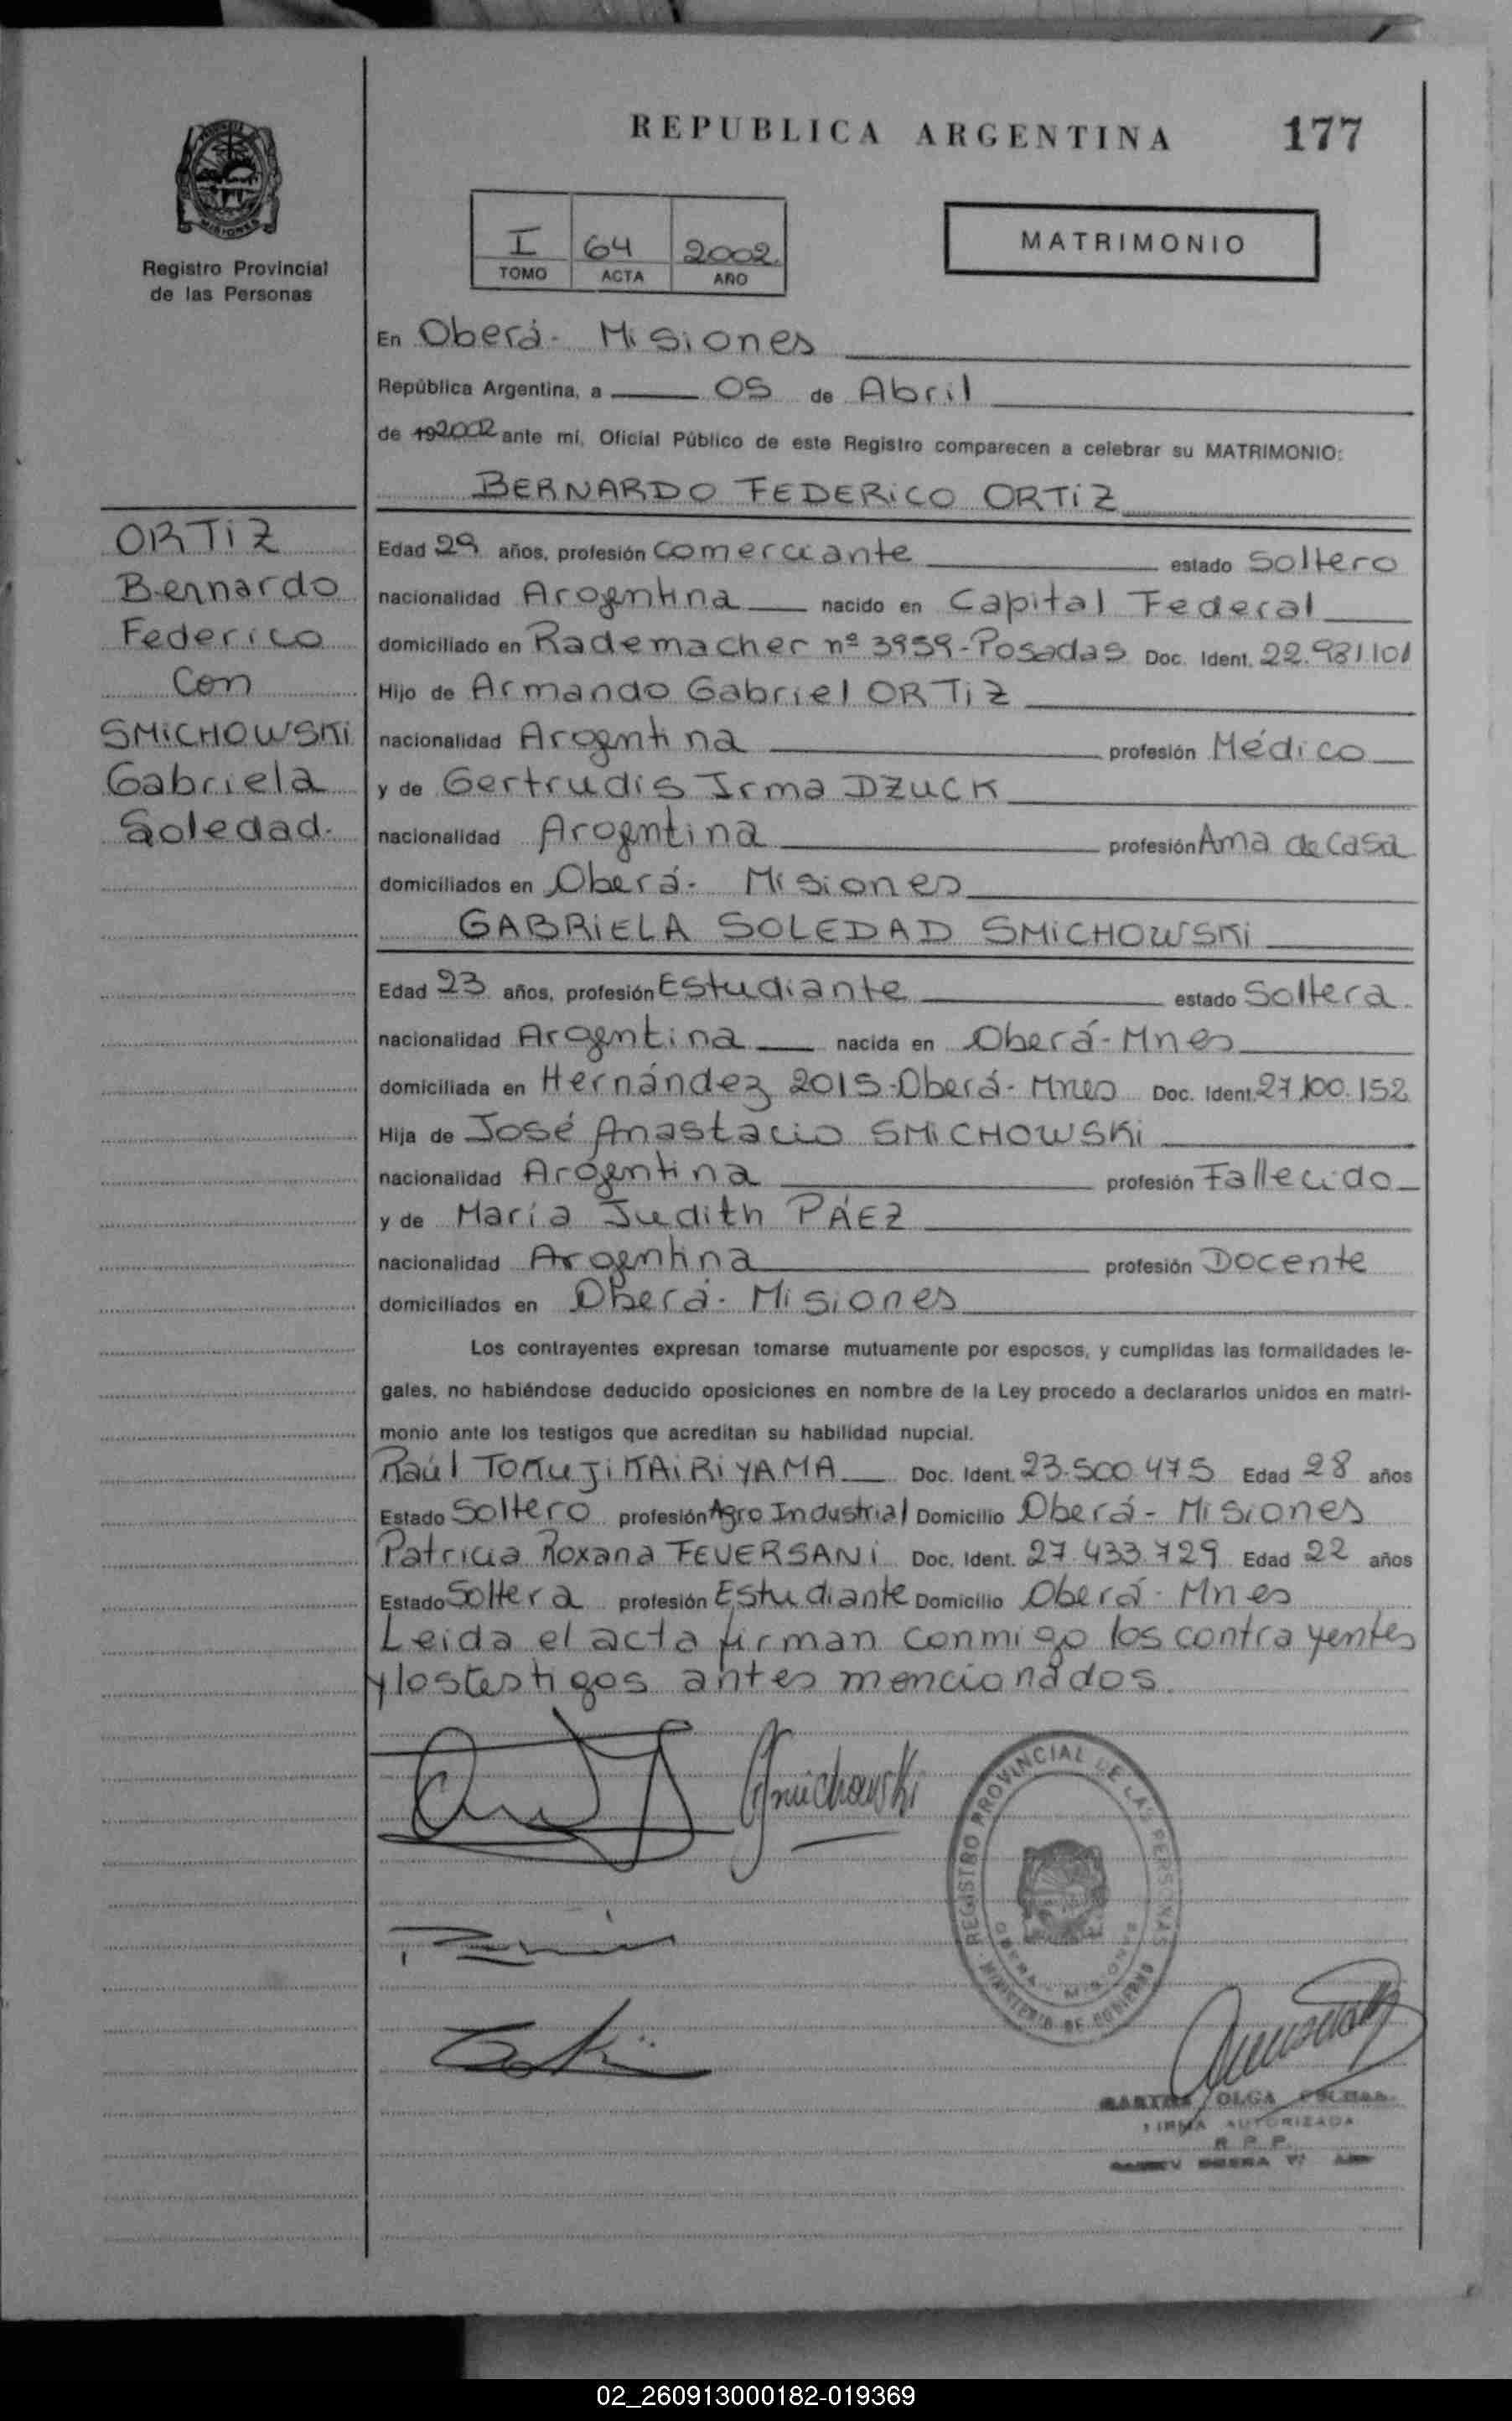 REPUBLICA ARGENTINA 177
MISIONES
Registro Provincial
de las Personas
I 64 2002
TOMO ACTA AÑO
MATRIMONIO
En Oberá- Misiones
República Argentina, a 05 de Abril
de 192002 ante mí, Oficial Público de este Registro comparecen a celebrar su MATRIMONIO:
BERNARDO FEDERICO ORTIZ
ORTIZ
Bernardo
Federico
Con
SMICHOWSKI
Gabriela
Soledad.
Edad 29 años, profesión Comerciante estado Soltero
nacionalidad Argentina nacido en Capital Federal
domiciliado en Rademacher nº 3959-Posadas Doc. Ident. 22.981.101
Hijo de Armando Gabriel ORTIZ
nacionalidad Argentina profesión Médico
y de Gertrudis Irma DZUCK
nacionalidad Argentina profesión Ama de Casa
domiciliados en Oberá- Misiones
GABRIELA SOLEDAD SMICHOWSKI
Edad 23 años, profesión Estudiante estado Soltera
nacionalidad Argentina nacida en Oberá-Mnes
domiciliada en Hernández 2015-Oberá-Mnes Doc. Ident. 27.100.152
Hija de José Anastacio SMICHOWSKI
nacionalidad Argentina profesión Fallecido
y de María Judith PÁEZ
nacionalidad Argentina profesión Docente
domiciliados en Oberá- Misiones
Los contrayentes expresan tomarse mutuamente por esposos, y cumplidas las formalidades le-
gales, no habiéndose deducido oposiciones en nombre de la Ley procedo a declararlos unidos en matri-
monio ante los testigos que acreditan su habilidad nupcial.
Raúl TOKUJI KAIRIYAMA Doc. Ident. 23.500.475 Edad 28 años
Estado Soltero profesión Agro Industrial Domicilio Oberá- Misiones
Patricia Roxana FEVERSANI Doc. Ident. 27.433.729 Edad 22 años
Estado Soltera profesión Estudiante Domicilio Oberá- Mnes
Leida el acta firman conmigo los contrayentes
y los testigos antes mencionados.
Smichowski
REGISTRO PROVINCIAL DE LAS PERSONAS
MINISTERIO DE GOBIERNO
OBERA - MISIONES
OLGA
FIRMA AUTORIZADA
R. P. P.
02_260913000182-019369